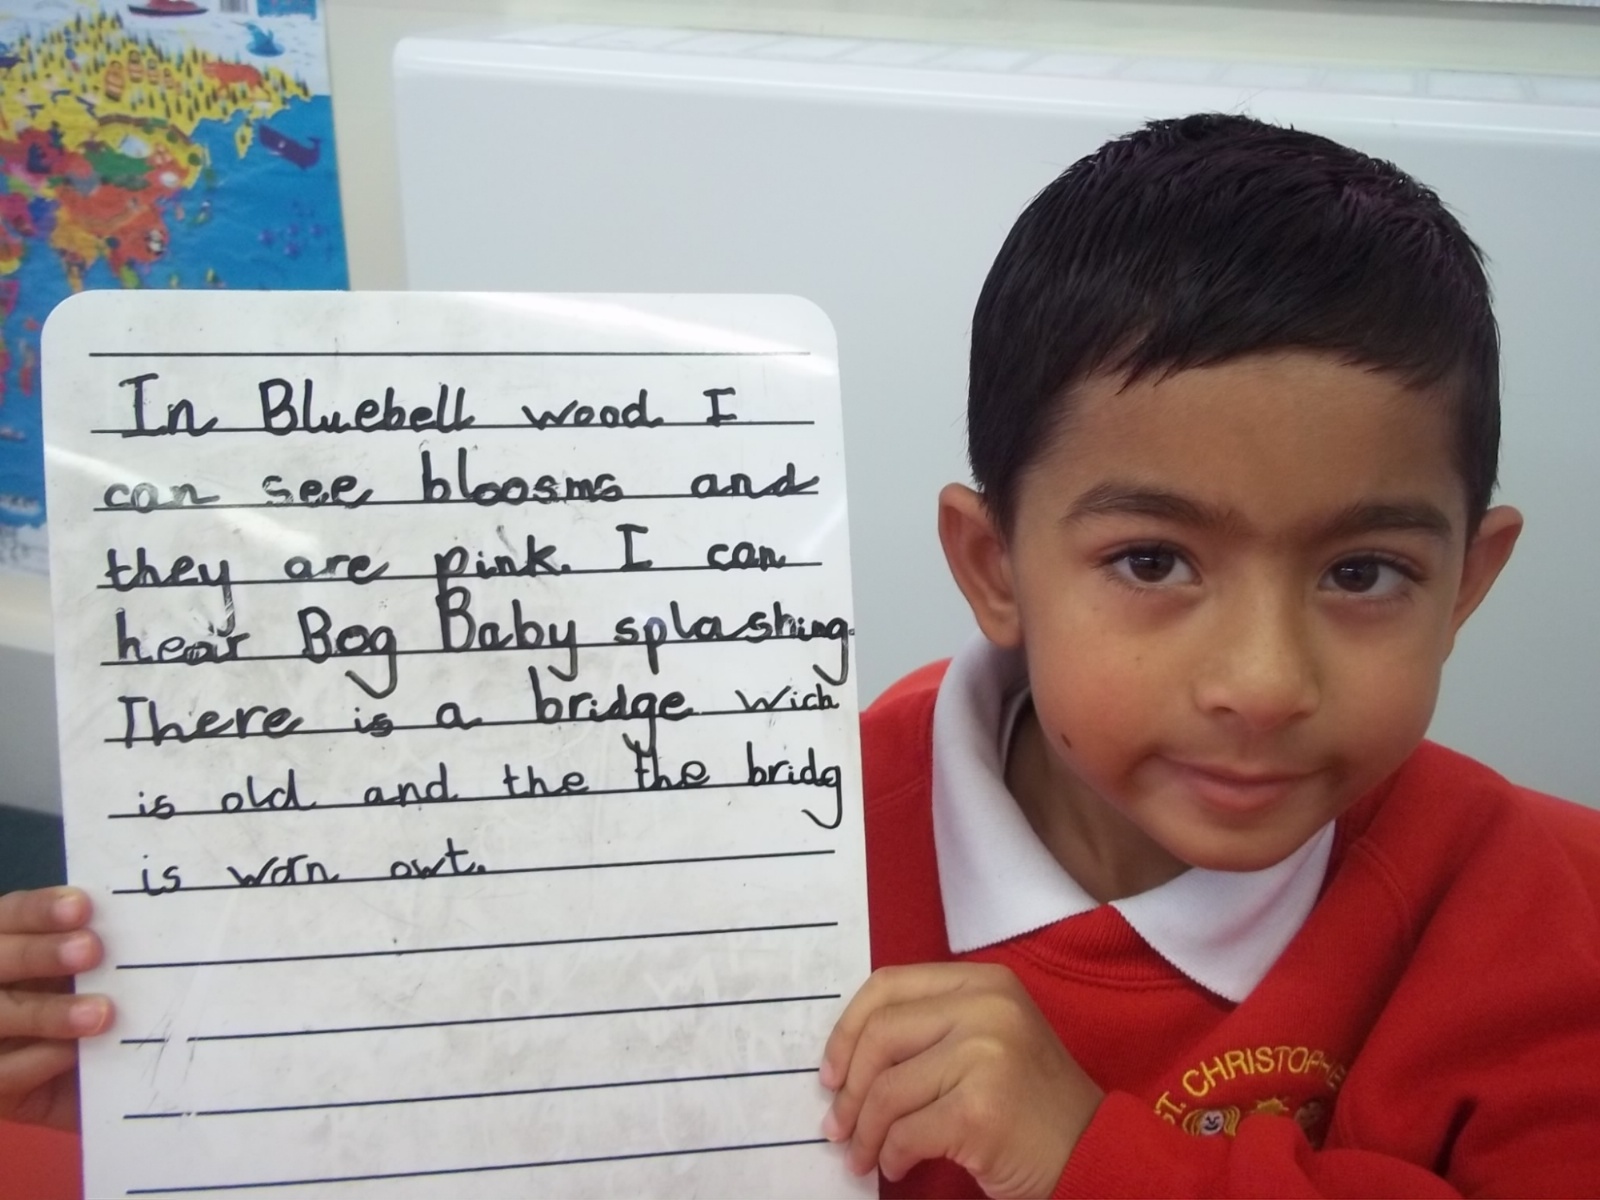 In Bluebell wood I
can see bloosms and
they are pink. I can
hear Bog Baby splashing.
There is a bridge wich
is old and the the bridg
is worn owt.
ST. CHRISTOPHE